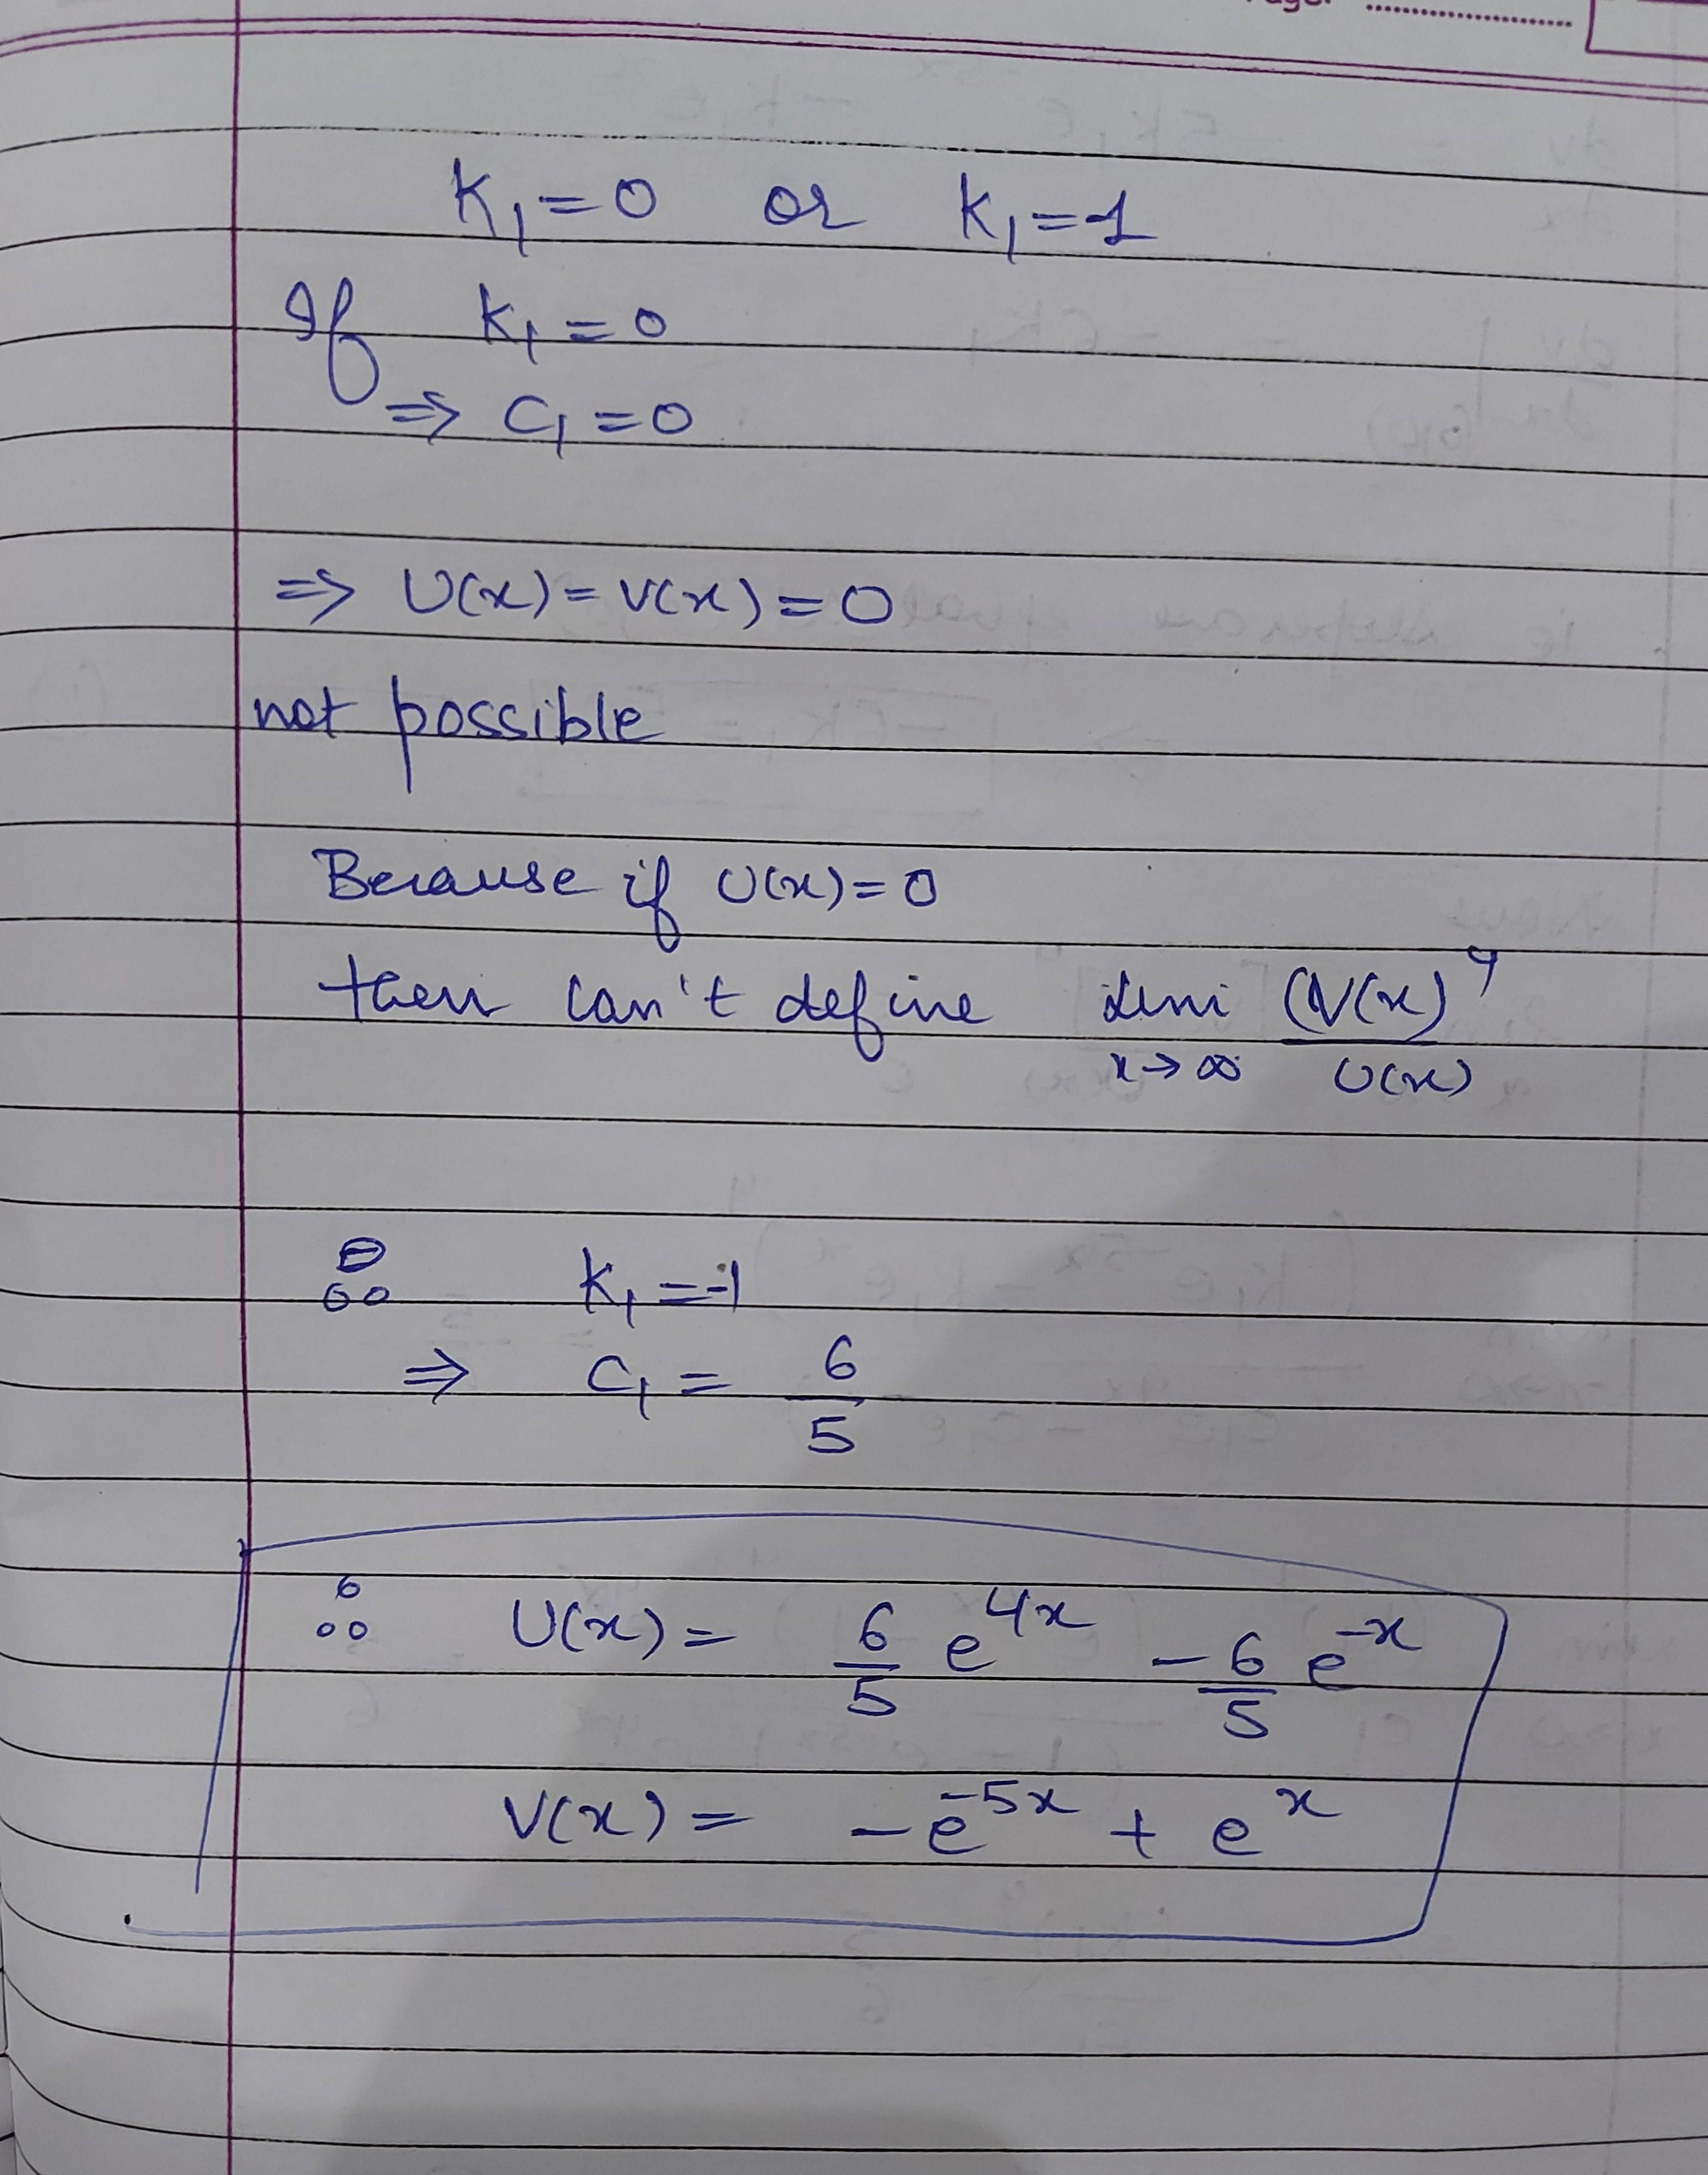 K₁ = 0 or K₁ = -1
If K₁ = 0
⇒ C₁ = 0
⇒ U(x) = V(x) = 0
not possible
Because if U(x) = 0
then can't define lim x→∞ (V(x))⁴ / U(x)
∴ K₁ = -1
⇒ C₁ = 6/5
∴ U(x) = 6/5 e^4x - 6/5 e^-x
V(x) = -e^-5x + e^x